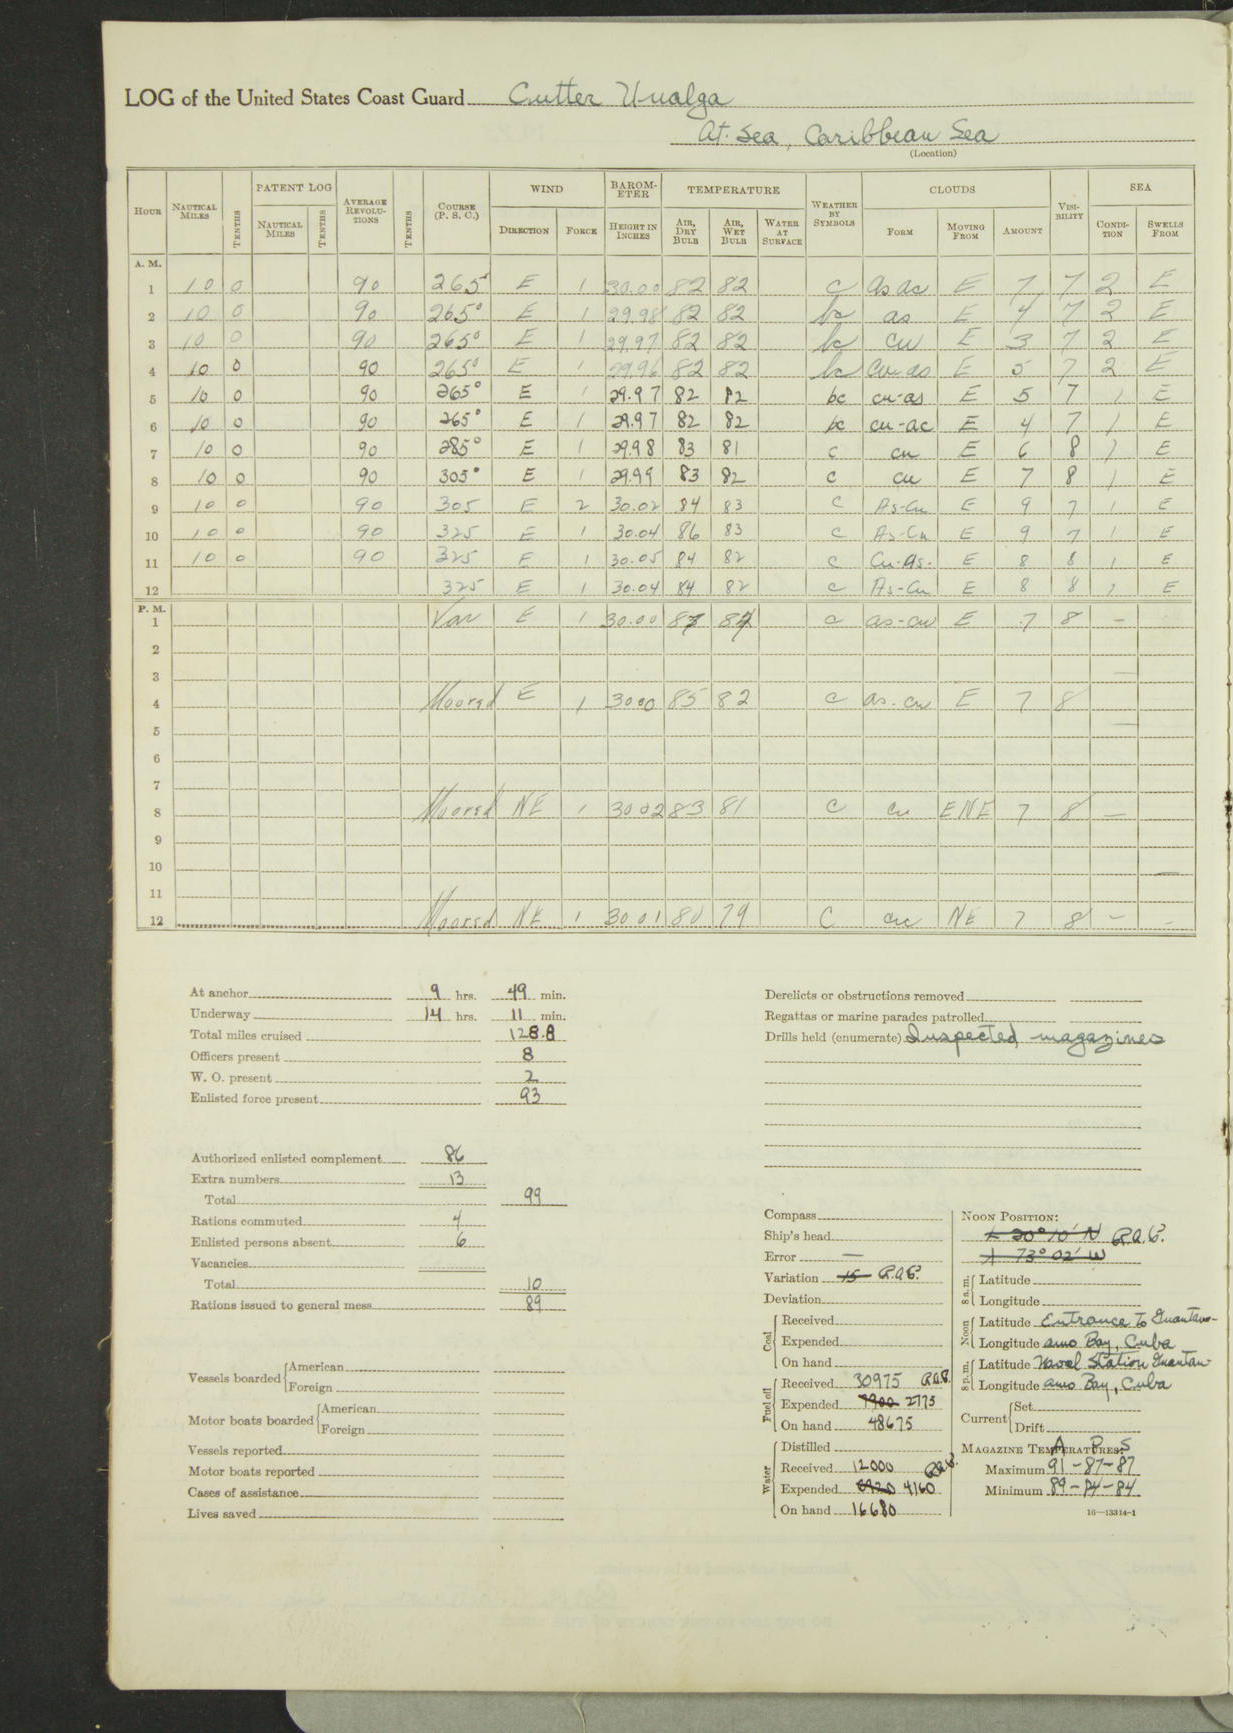 LOG of the United States Coast Guard Cutter Unalga
At Sea, Caribbean Sea
(Location)
HOUR NAUTICAL MILES TENTHS PATENT LOG NAUTICAL MILES TENTHS AVERAGE REVOLUTIONS TENTHS COURSE (P. S. C.) WIND DIRECTION FORCE BAROMETER HEIGHT IN INCHES TEMPERATURE AIR, DRY BULB AIR, WET BULB WATER AT SURFACE WEATHER BY SYMBOLS CLOUDS FORM MOVING FROM AMOUNT VISIBILITY SEA CONDITION SWELLS FROM
A. M.
1 10 0 90 265° E 1 30.00 82 82 c as ac E 7 7 2 E
2 10 0 90 265° E 1 29.98 82 82 bc as E 4 7 2 E
3 10 0 90 265° E 1 29.97 82 82 bc cu E 3 7 2 E
4 10 0 90 265° E 1 29.96 82 82 bc cu-as E 5 7 2 E
5 10 0 90 265° E 1 29.97 82 82 bc cu-as E 5 7 1 E
6 10 0 90 265° E 1 29.97 82 82 bc cu-ac E 4 7 1 E
7 10 0 90 285° E 1 29.98 83 81 c cu E 6 8 1 E
8 10 0 90 305° E 1 29.99 83 82 c cu E 7 8 1 E
9 10 0 90 305 E 2 30.02 84 83 c As-Cu E 9 7 1 E
10 10 0 90 325 E 1 30.04 86 83 c As-Cu E 9 7 1 E
11 10 0 90 325 E 1 30.05 84 82 c Cu-As. E 8 8 1 E
12 325 E 1 30.04 84 82 c As-Cu E 8 8 1 E
P. M.
1 Var E 1 30.00 as-cu E 7 8 —
2
3
4 Moored E 1 3000 85 82 c as-cu E 7 8 —
5
6
7
8 Moored NE 1 3002 83 81 c cu ENE 7 8 —
9
10
11 —
12 Moored NE 1 3001 80 79 C cu NE 7 8 – –
At anchor 9 hrs. 49 min.
Underway 14 hrs. 11 min.
Total miles cruised 128.8
Officers present 8
W. O. present 2
Enlisted force present 93
Authorized enlisted complement 86
Extra numbers 13
Total 99
Rations commuted 4
Enlisted persons absent 6
Vacancies
Total 10
Rations issued to general mess 89
Vessels boarded American
Foreign
Motor boats boarded American
Foreign
Vessels reported
Motor boats reported
Cases of assistance
Lives saved
Derelicts or obstructions removed
Regattas or marine parades patrolled
Drills held (enumerate) Inspected magazines
Compass
Ship's head
Error —
Variation 15
Deviation
Coal Received
Expended
On hand
Fuel oil Received 30975
Expended 2775
On hand 48675
Water Distilled
Received 12000
Expended 4160
On hand 16680
NOON POSITION:
L 20° 10' N
λ 73° 02' W
8 a.m. Latitude
Longitude
Noon Latitude Entrance to Guantan-
Longitude amo Bay, Cuba
8 p.m. Latitude Naval Station Guantan-
Longitude amo Bay, Cuba
Current Set
Drift
MAGAZINE TEMPERATURES: A P S
Maximum 91-87-87
Minimum 89-84-84
16—13314-1